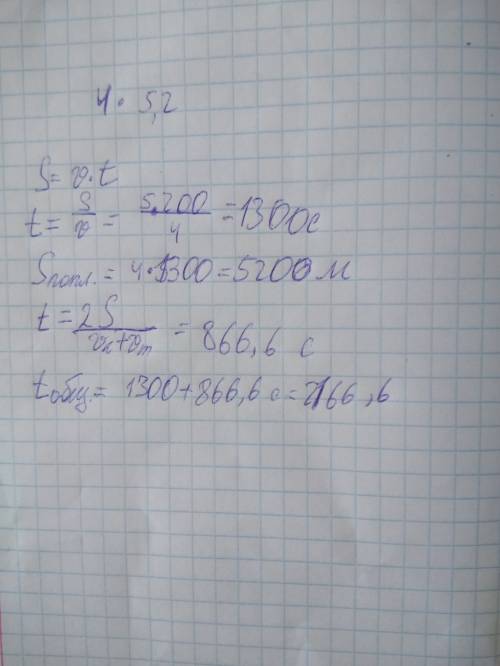 4 · 5,2
S = v · t
t = S/v = 5.200/4 = 1300с
Sпопл. = 4 · 1300 = 5200 м
t = 2S/(vк + vт) = 866,6 с
tобщ. = 1300 + 866,6 с = 2166,6